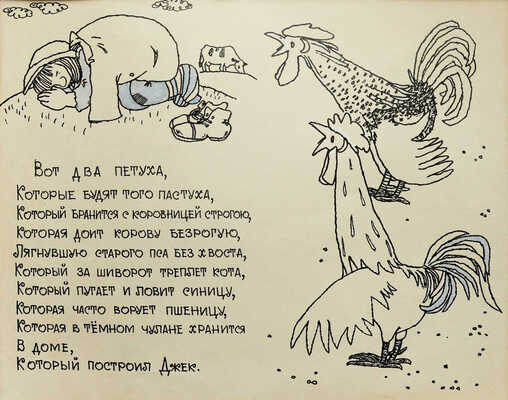 Вот два петуха,
Которые будят того пастуха,
Который бранится с коровницей строгою,
Которая доит корову безрогую,
Лягнувшую старого пса без хвоста,
Который за шиворот треплет кота,
Который пугает и ловит синицу,
Которая часто ворует пшеницу,
Которая в тёмном чулане хранится
В доме,
Который построил Джек.